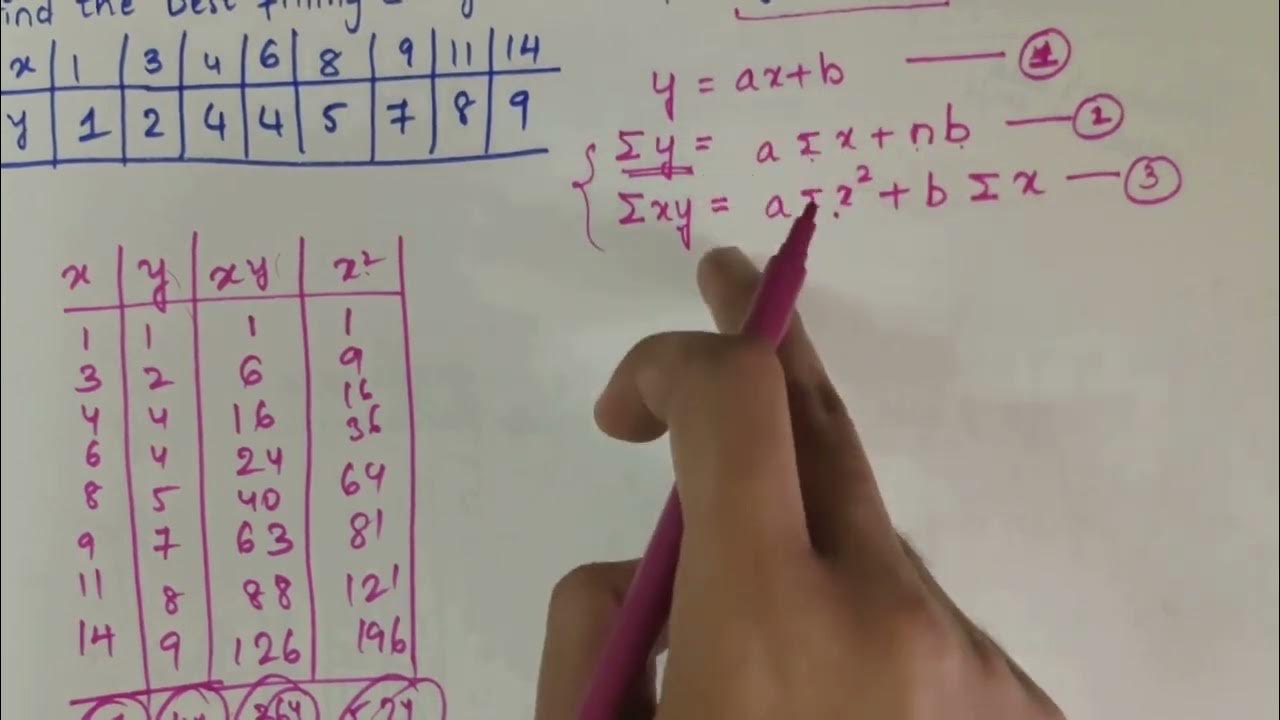 find the best fitting
x 1 3 4 6 8 9 11 14
y 1 2 4 4 5 7 8 9
y = ax+b — 1
Σy = a Σx + nb — 2
Σxy = a Σx² + b Σx — 3
x y xy x²
1 1 1 1
3 2 6 9
4 4 16 16
6 4 24 36
8 5 40 64
9 7 63 81
11 8 88 121
14 9 126 196
364